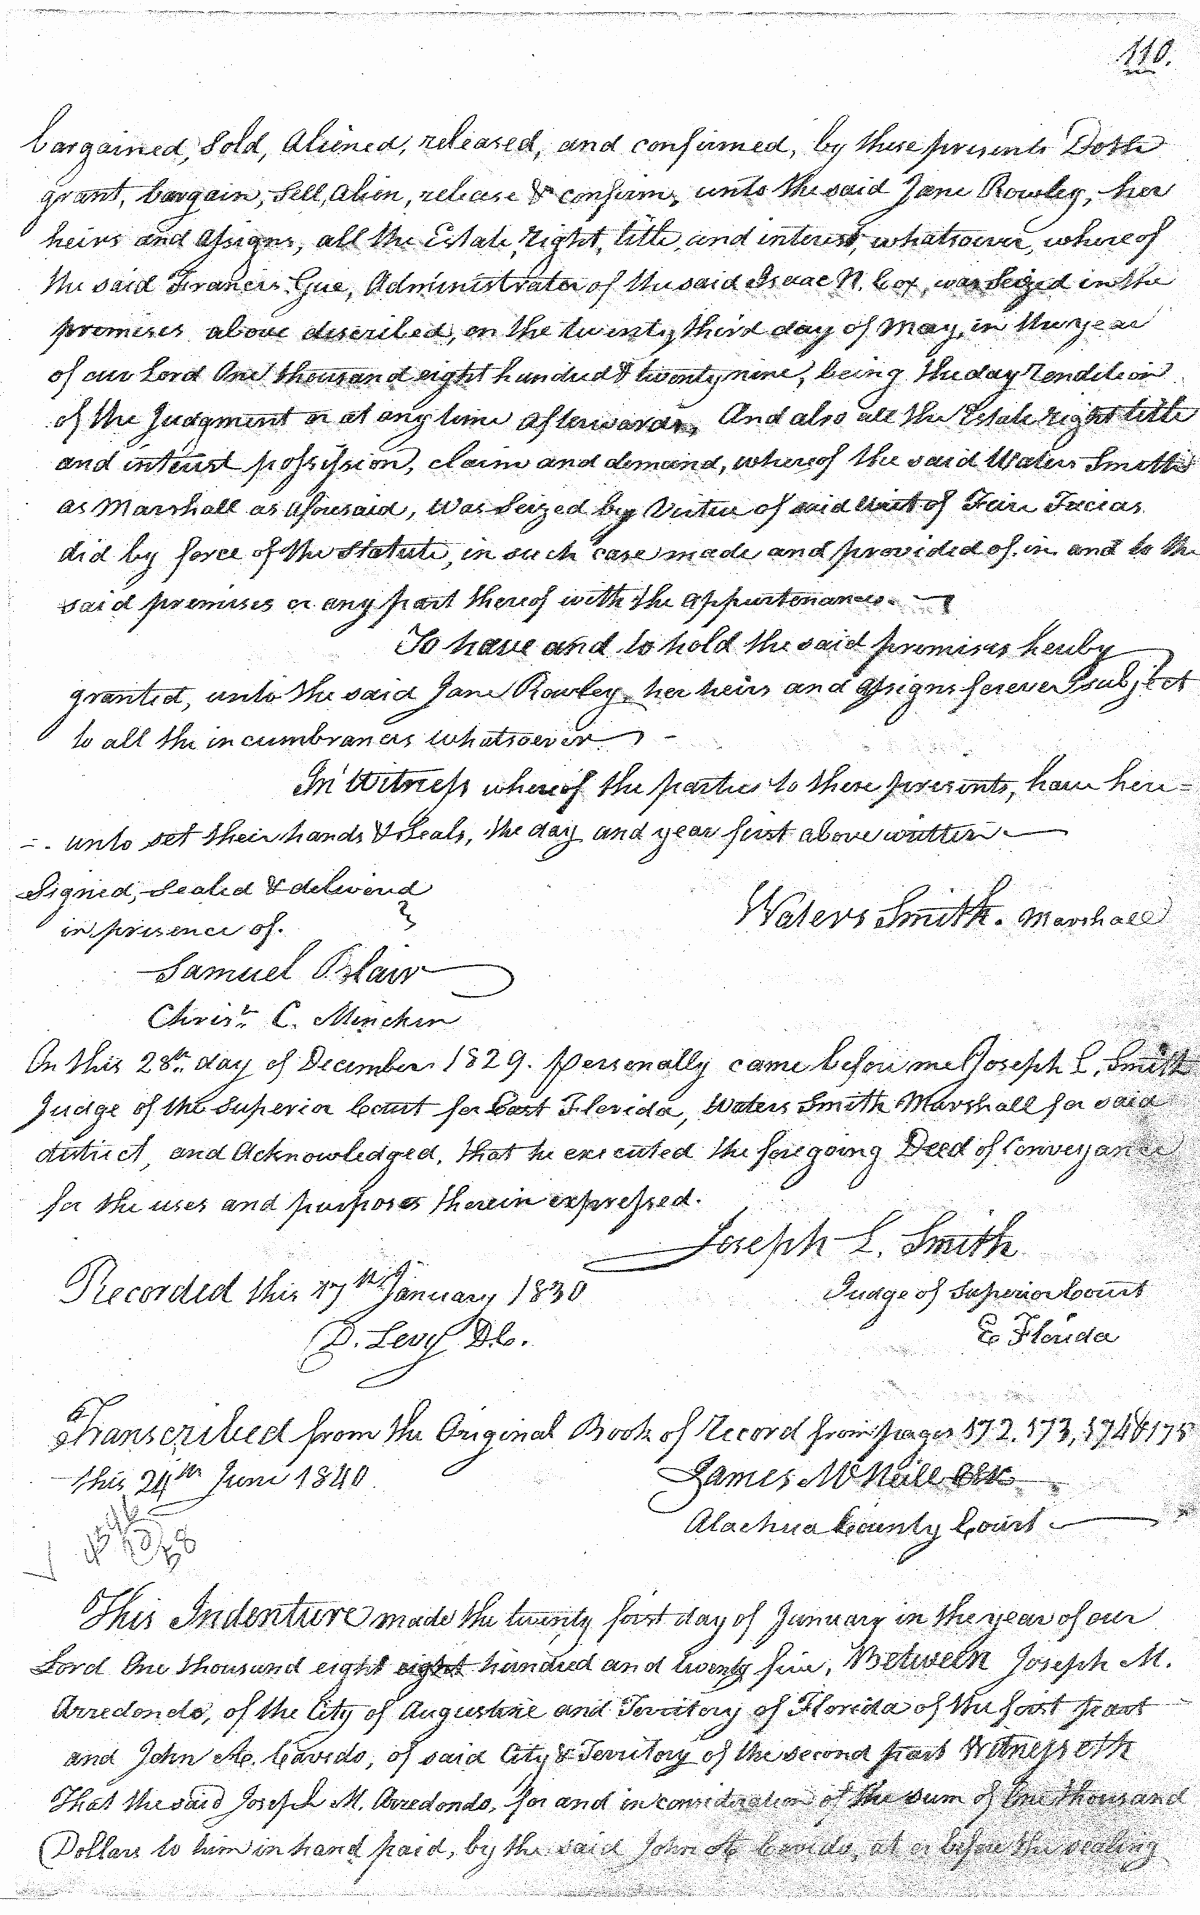 110.
bargained, Sold, Aliened, released, and confirmed, by these presents Doth
grant, bargain, Sell, Alien, release & confirm, unto the said Jane Rowley, her
heirs and assigns, all the Estate, right, title, and interest, whatsoever, whereof
the said Francis Gue, Administrator of the said Isaac N. Cox, was Seized in the
premises above discribed, on the twenty third day of May, in the year
of our Lord One thousand eight hundred & twenty nine, being the day rendition
of the Judgment or at any time afterwards, And also all the Estate right title
and interest possession, claim and demand, whereof the said Waters Smith
as Marshall as aforesaid, was Seized by Virtue of said Writ of Fieri Facias
did by force of the Statute, in such case made and provided of in and to the
said premises or any part thereof with the appurtenances.
To have and to hold the said premises hereby
granted, unto the said Jane Rowley, her heirs and assigns forever subject
to all the incumbrances whatsoever
In Witness whereof the parties to these presents, have here=
=. unto set their hands & Seals, the day and year first above written
Signed, Sealed & delivered
in presence of.
Waters Smith. Marshall
Samuel Blair
Chrisr. C. Minchin
On this 28th day of December 1829. personally came before me Joseph L. Smith
Judge of the Superior Court for East Florida, Waters Smith Marshall for said
district, and Acknowledged, that he executed the foregoing Deed of Conveyance
for the uses and purposes therein expressed.
Joseph L. Smith
Recorded this 17th January 1830
Judge of Superior Court
D. Levy D.C.
E Florida
Transcribed from the Original Book of Record from pages 172. 173, 174 & 175
this 24th June 1840
James McNeill Clk
Alachua County Court
This Indenture made the twenty first day of January in the year of our
Lord One thousand eight eight hundred and twenty five, Between Joseph M.
Arredondo, of the City of Augustine and Territory of Florida of the first part
and John A. Cavedo, of said City & Territory of the second part Witnesseth
That the said Joseph M. Arredondo, for and in consideration of the sum of One thousand
Dollars to him in hand paid, by the said John A Cavedo, at or before the sealing